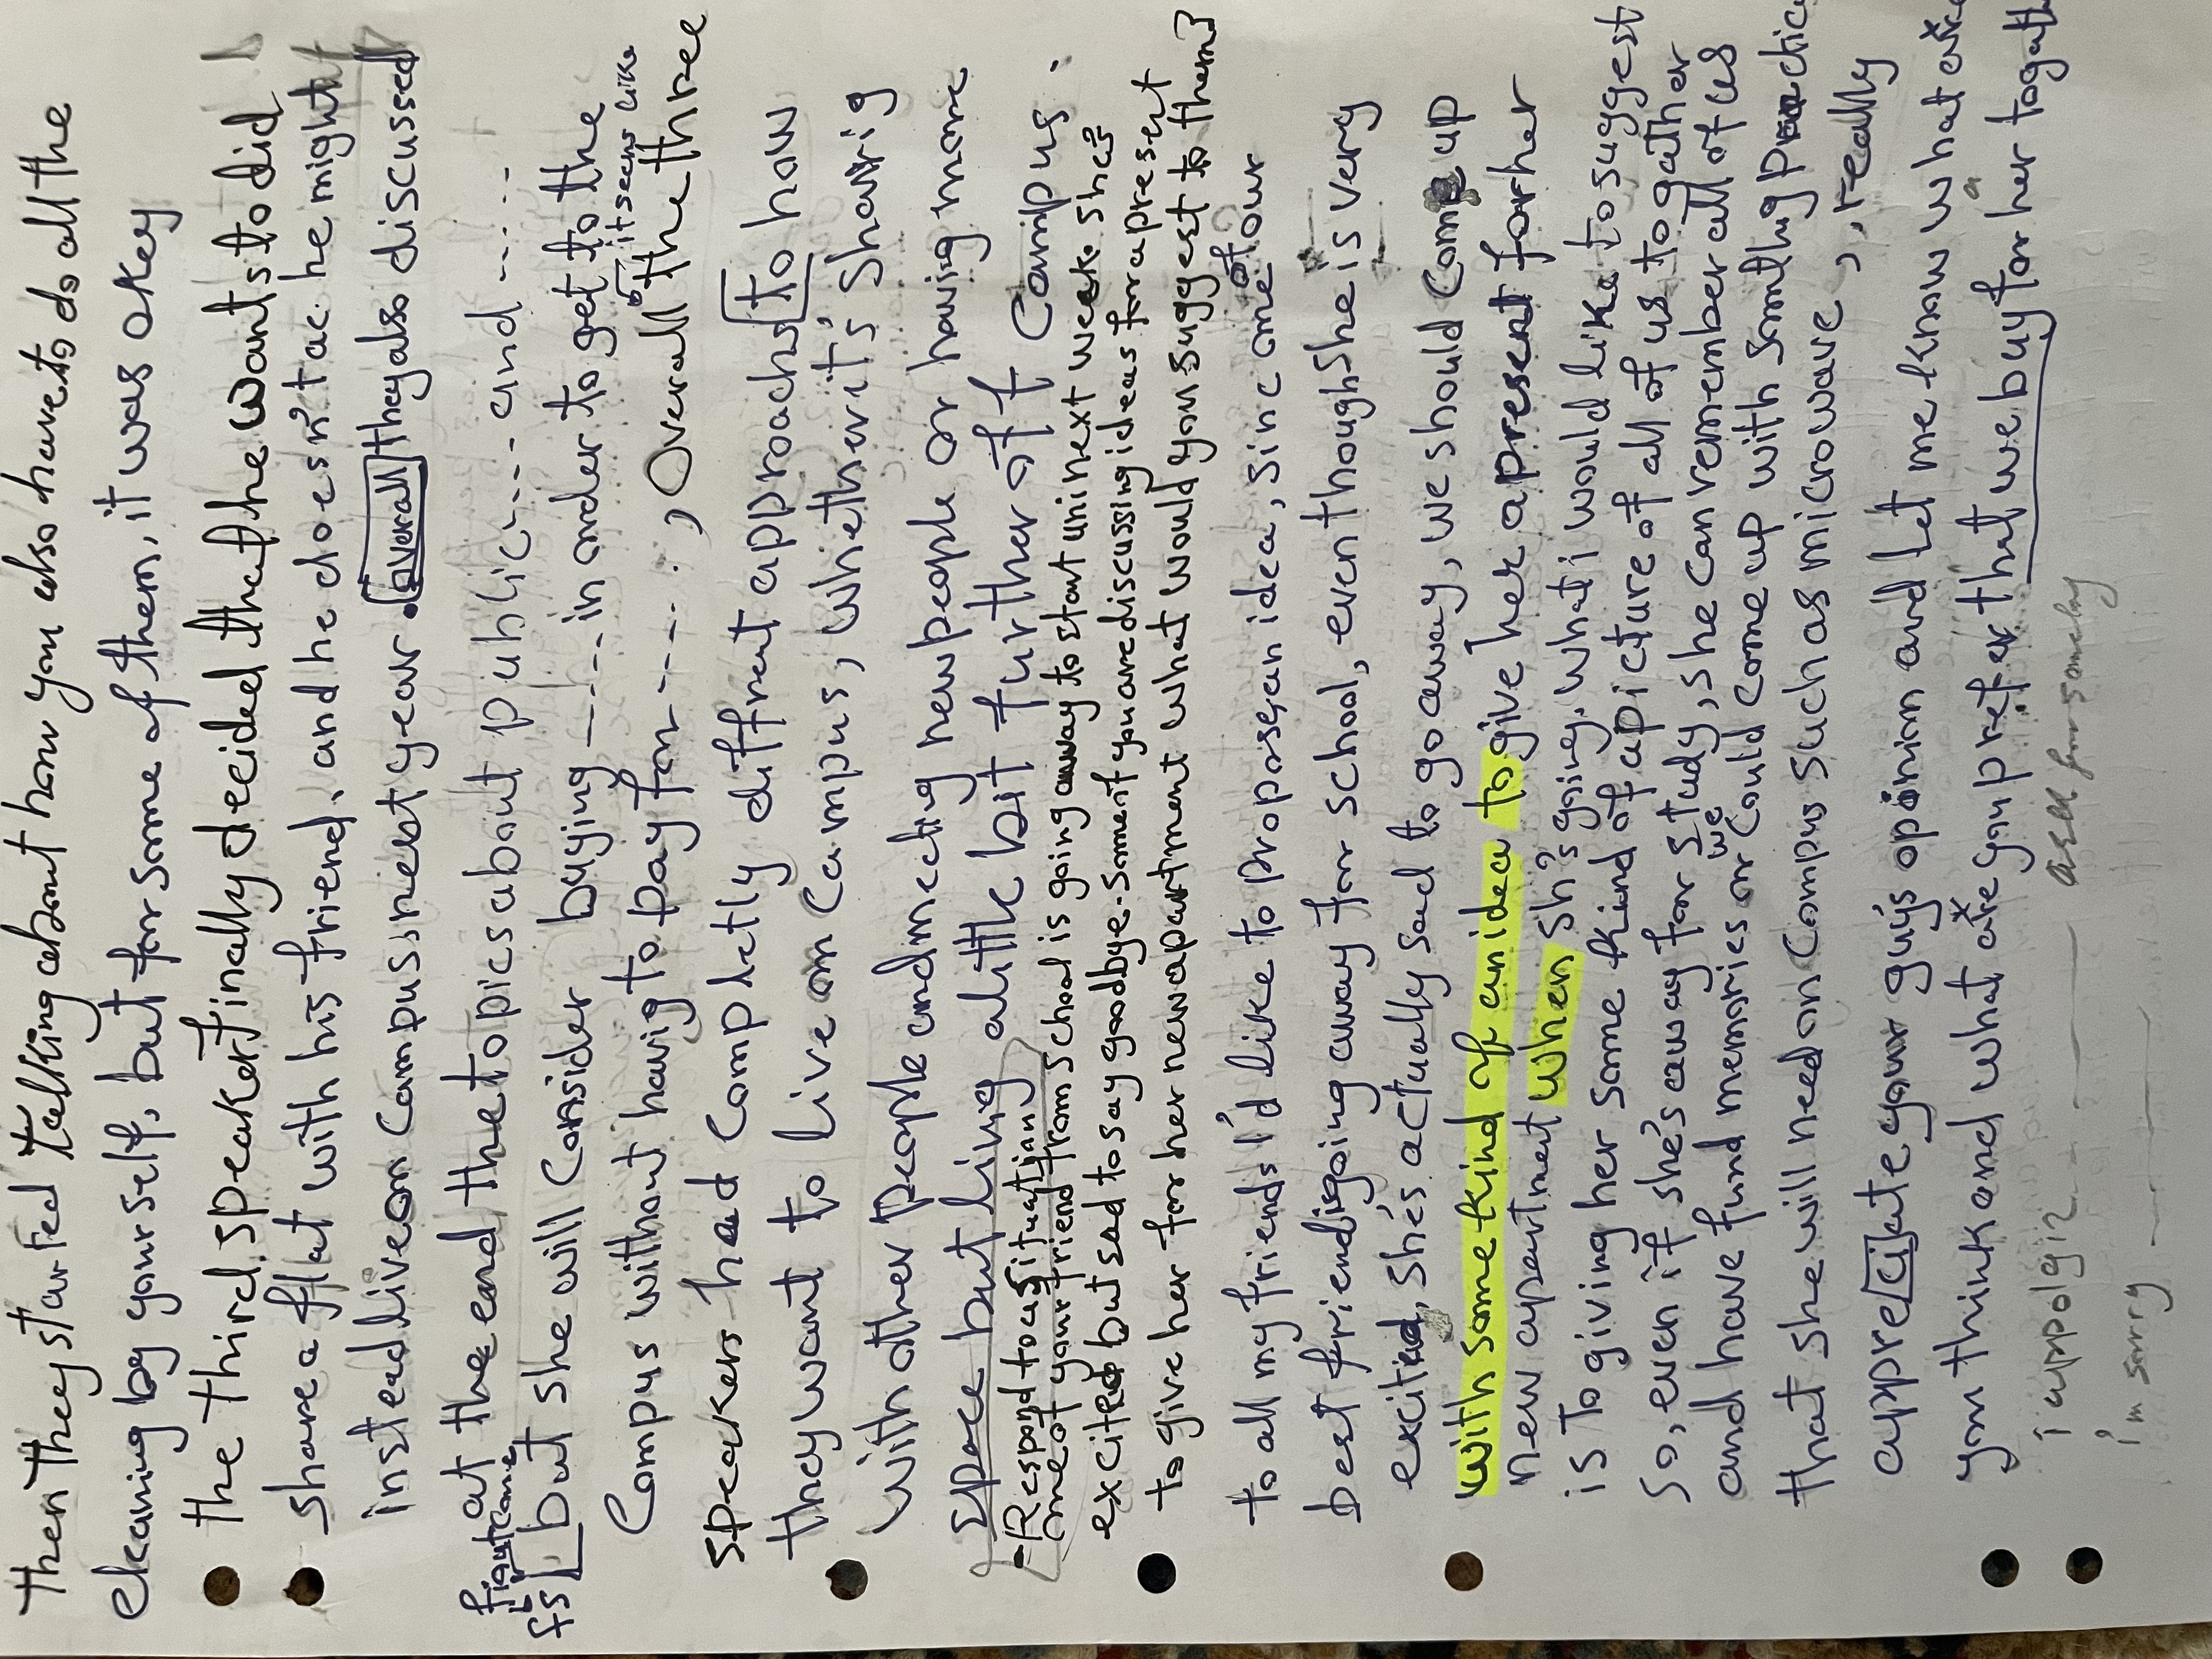 then they started talking about how you also have to do all the
cleaning by yourself, but for some of them, it was okey
the third speaker finally decided that he wants to did
share a flat with his friend, and he doesn't ac he might
instead live on campus next year. overall they also discussed
at the end the topics about public ---- and -----
but she will consider buying ---- in order to get to the
it seems like
Compus without havig to pay for -----, Overall the three
speakers had completly diffrent approachs to how
they want to live on campus, whether it's sharig
with other people and meeting new people or having more
space but living a little bit further off campus.
-Respond to a situation
one of your friend from school is going away to start uni next week she's
excited but sad to say goodbye. some of you are discussing ideas for a present
to give her for her new apartment what would you suggest to them]
to all my friends I'd like to propose an idea, sinc one of our
best friend going away for school, even though she is very
excited, she's actually sad to go away, we should come up
with some kind of an idea to give her a present for her
new apartment when sh's going. what i would like to suggest
is to giving her some kind of a picture of all of us to gather
so, even if she's away for study, she can remember all of us
and have fund memories or we could come up with somthing practic
that she will need on Compus such as microwave, , really
appreciate your guys opinion and let me know what are
you think and what are you prefer that we buy for her togath
i appologiz --- ask for somebody
i'm sorry